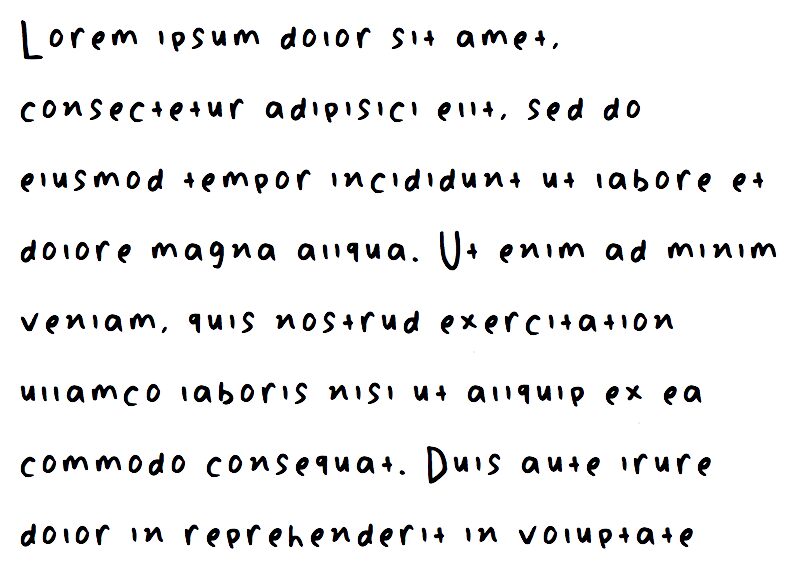 Lorem ipsum dolor sit amet,
consectetur adipisici elit, sed do
eiusmod tempor incididunt ut labore et
dolore magna aliqua. Ut enim ad minim
veniam, quis nostrud exercitation
ullamco laboris nisi ut aliquip ex ea
commodo consequat. Duis aute irure
dolor in reprehenderit in voluptate